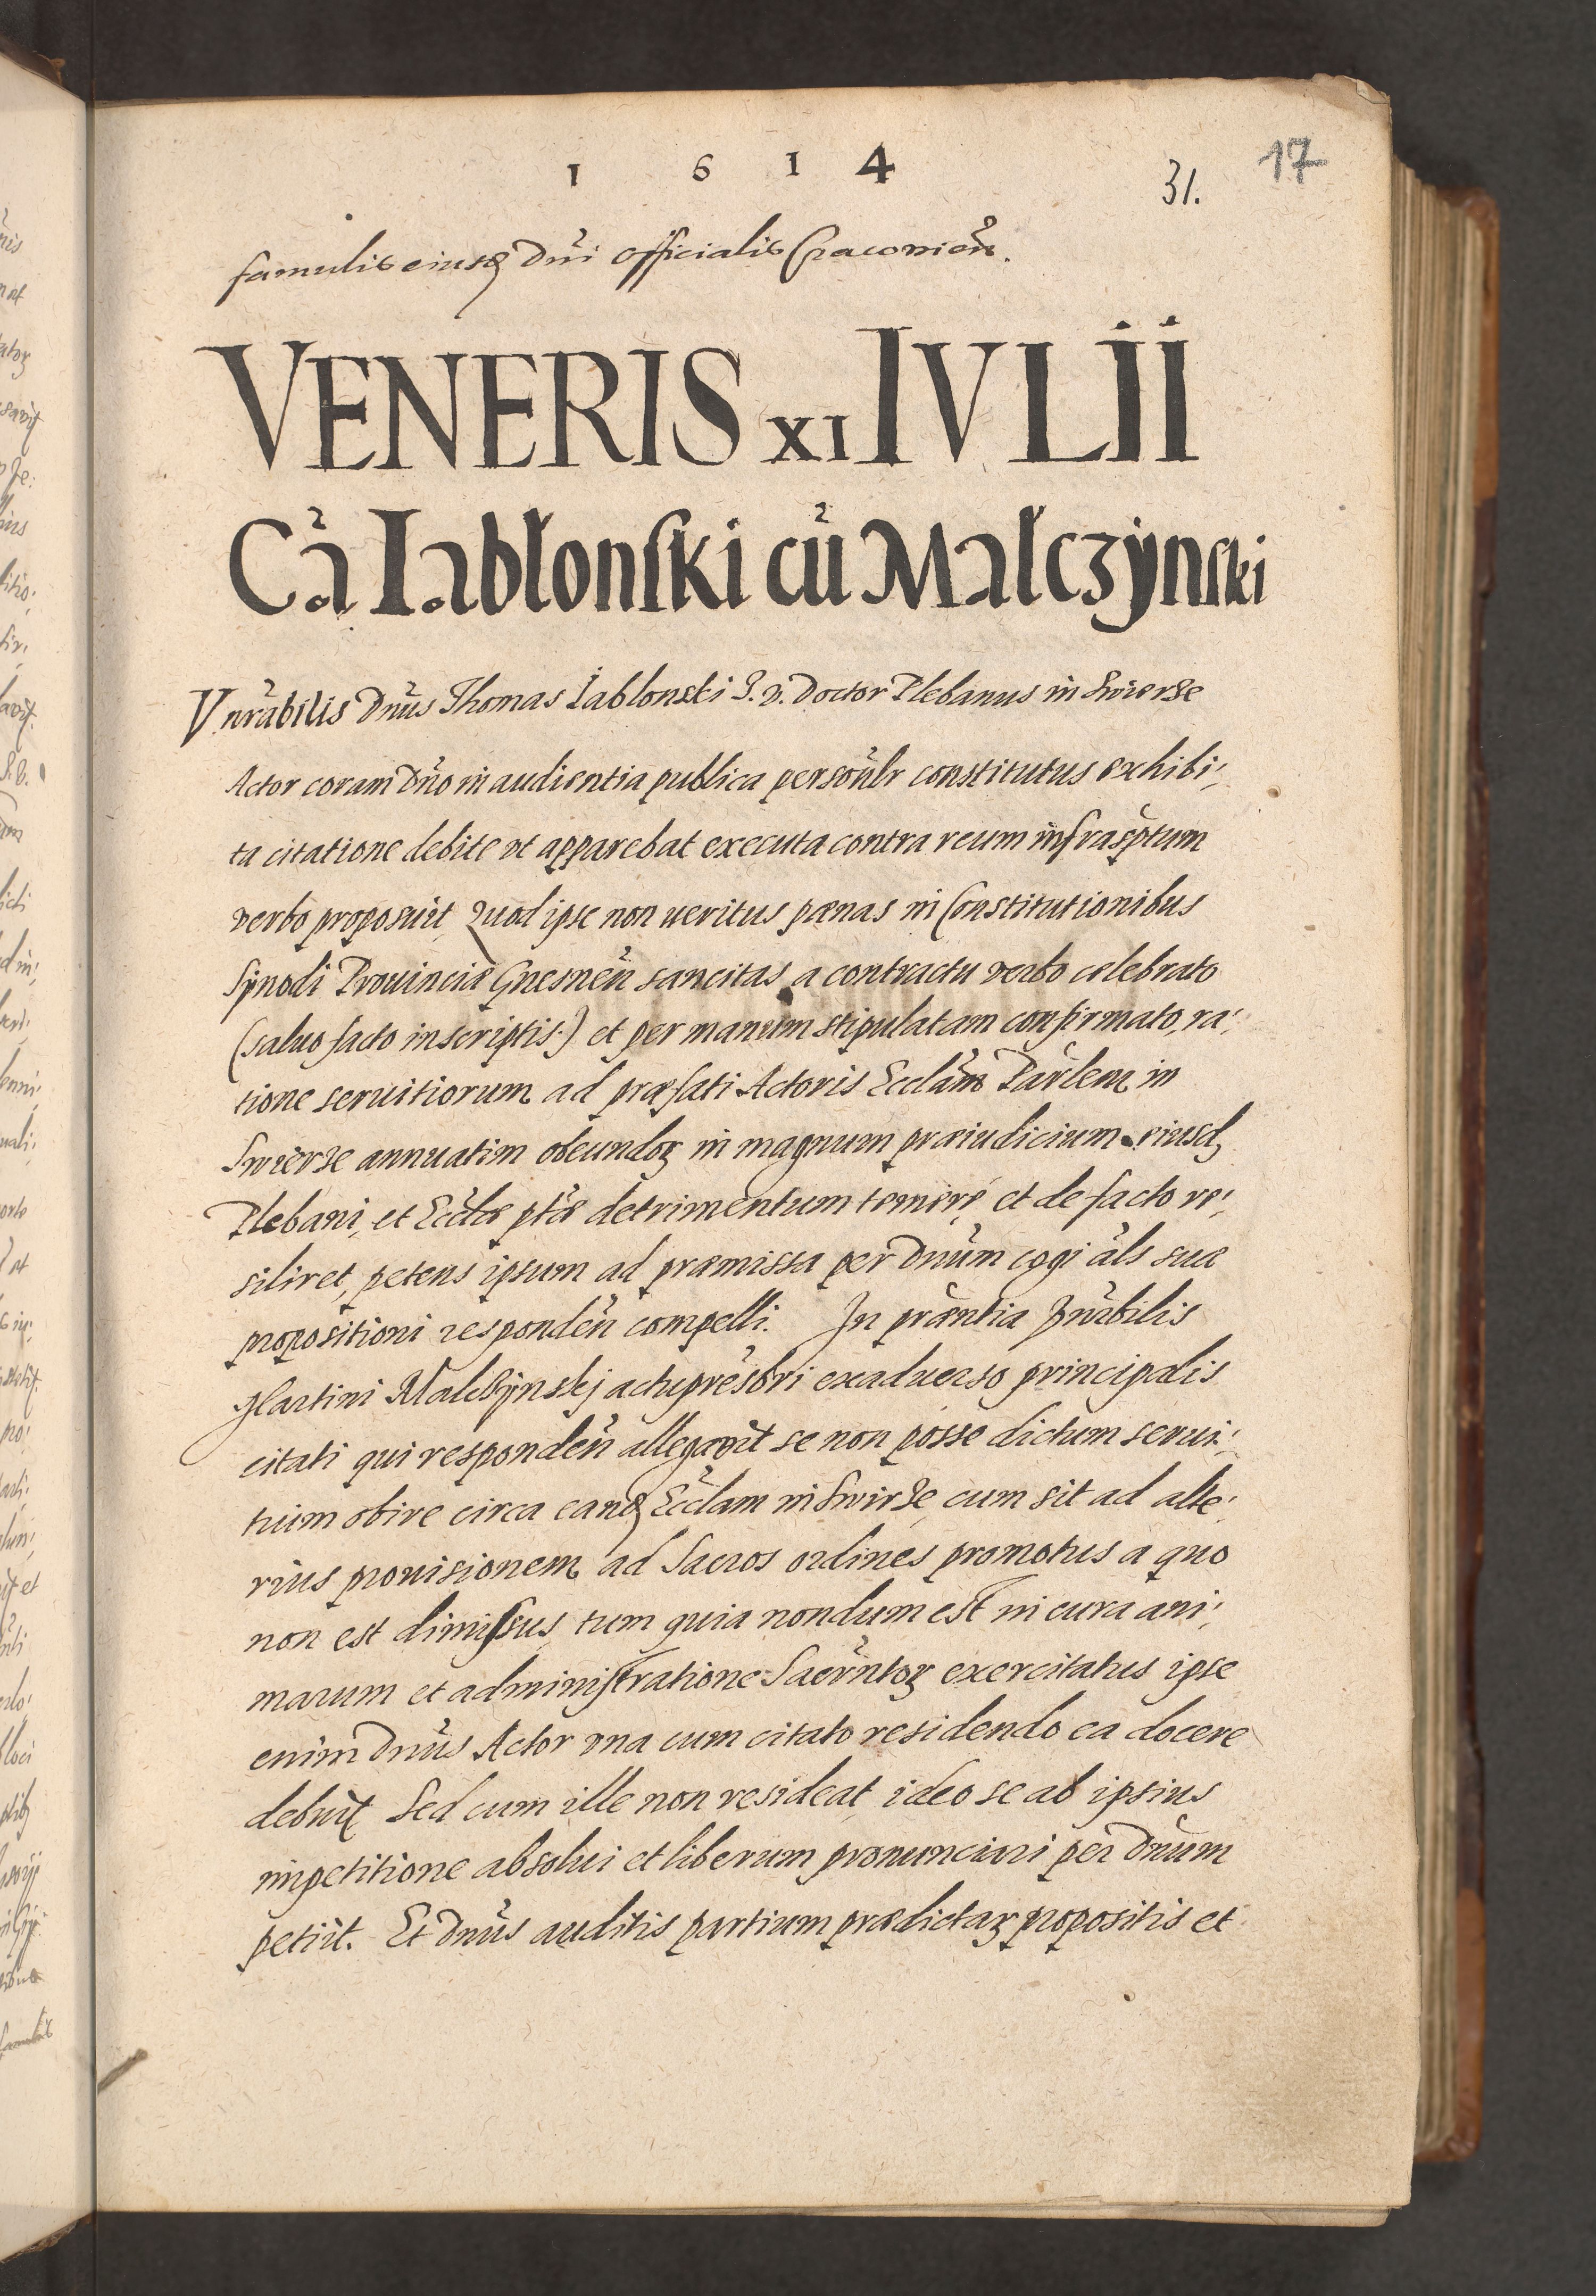 1 6 1 4
31. 17
famulis eiusq Dni officialis Cracovien.
VENERIS XI IVLII
Ca Iablonski cu Malczÿnski
Vnrabilis Dnus Thomas Iablonski S. D. Doctor Plebanus in Swierze
Actor coram Dno in audientia publica personlr constitutus exhibi,
ta citatione debite vt apparebat executa contra reum infrasptum
verbo proposuit, Quod ipse non ueritus pœnas in Constitutionibus
Sÿnodi Prouinciæ Gnesnen sancitas a contractu verbo celebrato
(saluo facto inscriptis.) et per manum stipulatam confirmato, ra,
tione seruitiorum ad præfati Actoris Ecclam Parlem in
Swierze annuatim obeundoꝝ in magnum præiudicium eiusdꝫ
Plebani, et Ecclæ ptæ detrimentum temere et de facto re,
siliret, petens ipsum ad præmissa per Dnum cogi als suæ
propositioni responden compelli. In præntia Hnrbilis
Martini Malczÿnskj actu presbri exaduerso principalis
citati qui responden allegavit se non posse dictum serui,
tium obire circa eandꝫ Ecclam in Swirze cum sit ad alte,
rius prouisionem ad Sacros ordines promotus a quo
non est dimissus, tum quia nondum est in cura ani,
marum et administratione Sacrntoꝝ exercitatus ipse
enim Dnus Actor vna cum citato residendo ea docere
debuit Sed cum ille non resideat ideo se ab ipsius
impetitione absolui et liberum pronunciari per Dnum
petiit. Et Dnus auditis partium prædictaꝝ propositis et